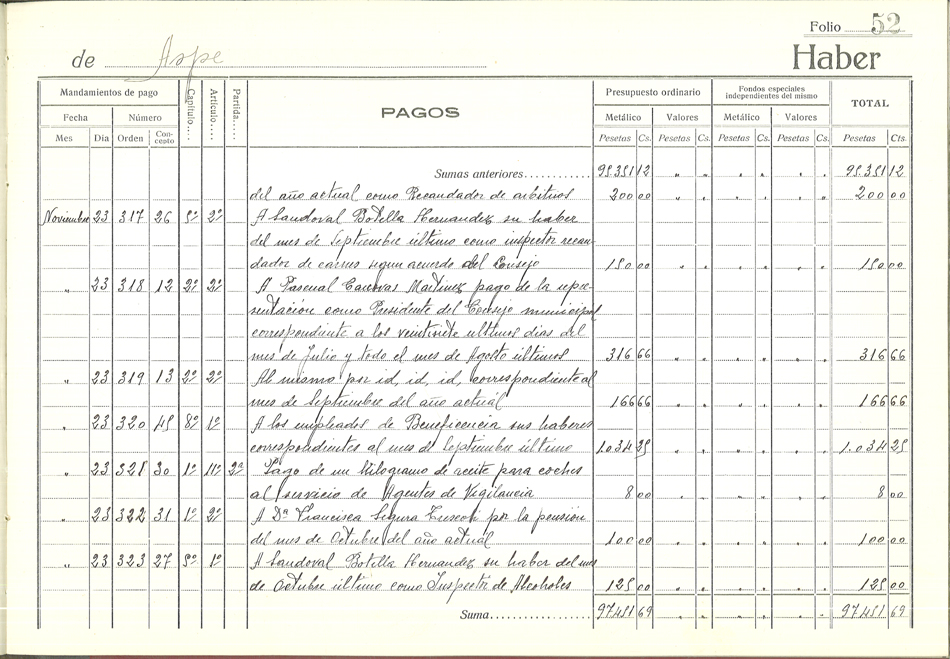 Folio 52
de Aspe Haber
Mandamientos de pago Capítulo.... Artículo.... Partida.... PAGOS Presupuesto ordinario Fondos especiales independientes del mismo TOTAL
Fecha Número Metálico Valores Metálico Valores
Mes Día Orden Concepto Pesetas Cs. Pesetas Cs. Pesetas Cs. Pesetas Cs. Pesetas Cts.
Sumas anteriores............ 95.351 12 " " " " " " 95.351 12
del año actual como Recaudador de arbitrios 200 00 " " " " " " 200 00
Noviembre 23 317 26 5º 2º A Sandoval Botella Hernandez su haber
del mes de Septiembre último como inspector recau-
dador de carnes segun acuerdo del Consejo 150 00 " " " " " " 150 00
" 23 318 12 2º 2º A Pascual Canovas Martinez pago de la repre-
sentación como Presidente del Consejo municipal
correspondiente a los veintisiete ultimos dias del
mes de Julio y todo el mes de Agosto últimos 316 66 " " " " " " 316 66
" 23 319 13 2º 2º Al mismo por id, id, id, correspondiente al
mes de Septiembre del año actual 166 66 " " " " " " 166 66
" 23 320 45 8º 1º A los empleados de Beneficencia sus haberes
correspondientes al mes de Septiembre último 1.034 25 " " " " " " 1.034 25
" 23 321 30 1º 11º 2ª Pago de un kilogramo de aceite para coches
al servicio de Agentes de Vigilancia 8 00 " " " " " " 8 00
" 23 322 31 1º 2º A Dª Francisca Segura por la pensión
del mes de Octubre del año actual 100 00 " " " " " " 100 00
" 23 323 27 5º 1º A Sandoval Botella Hernandez su haber del mes
de Octubre último como Inspector de Alcoholes 125 00 " " " " " " 125 00
Suma...................... 97.451 69 97.451 69